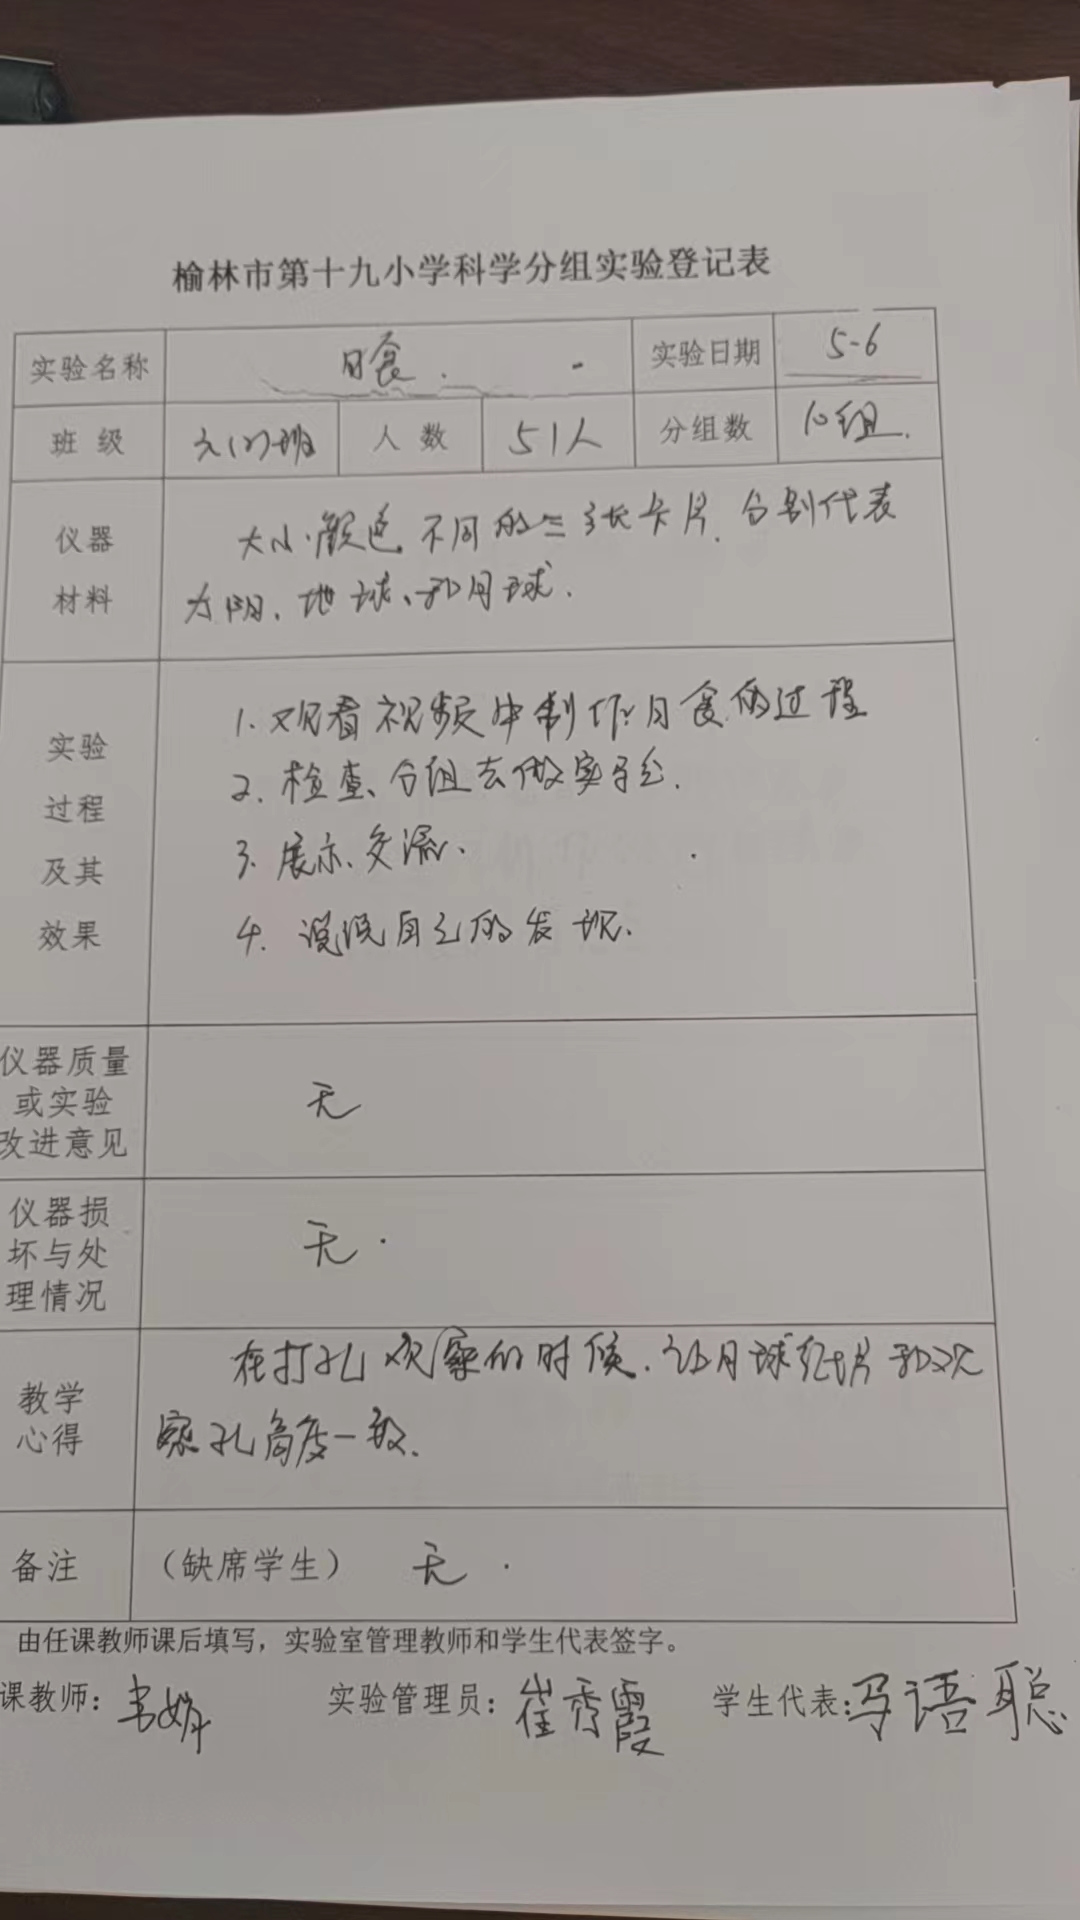 榆林市第十九小学科学分组实验登记表
实验名称 日食. 实验日期 5-6
班级 三(2)班 人数 51人 分组数 10组.
仪器材料 大小.颜色不同的三张卡片.分别代表
太阳、地球、和月球.
实验过程及其效果 1.观看视频中制作日食的过程
2.检查、分组去做实验.
3.展示、交流.
4.说说自己的发现.
仪器质量或实验改进意见 无
仪器损坏与处理情况 无.
教学心得 在打孔观察的时候.让月球纸片和观
察孔角度一致.
备注 (缺席学生) 无.
由任课教师课后填写，实验室管理教师和学生代表签字。
课教师: 韦娇 实验管理员: 崔秀霞 学生代表: 马语聪